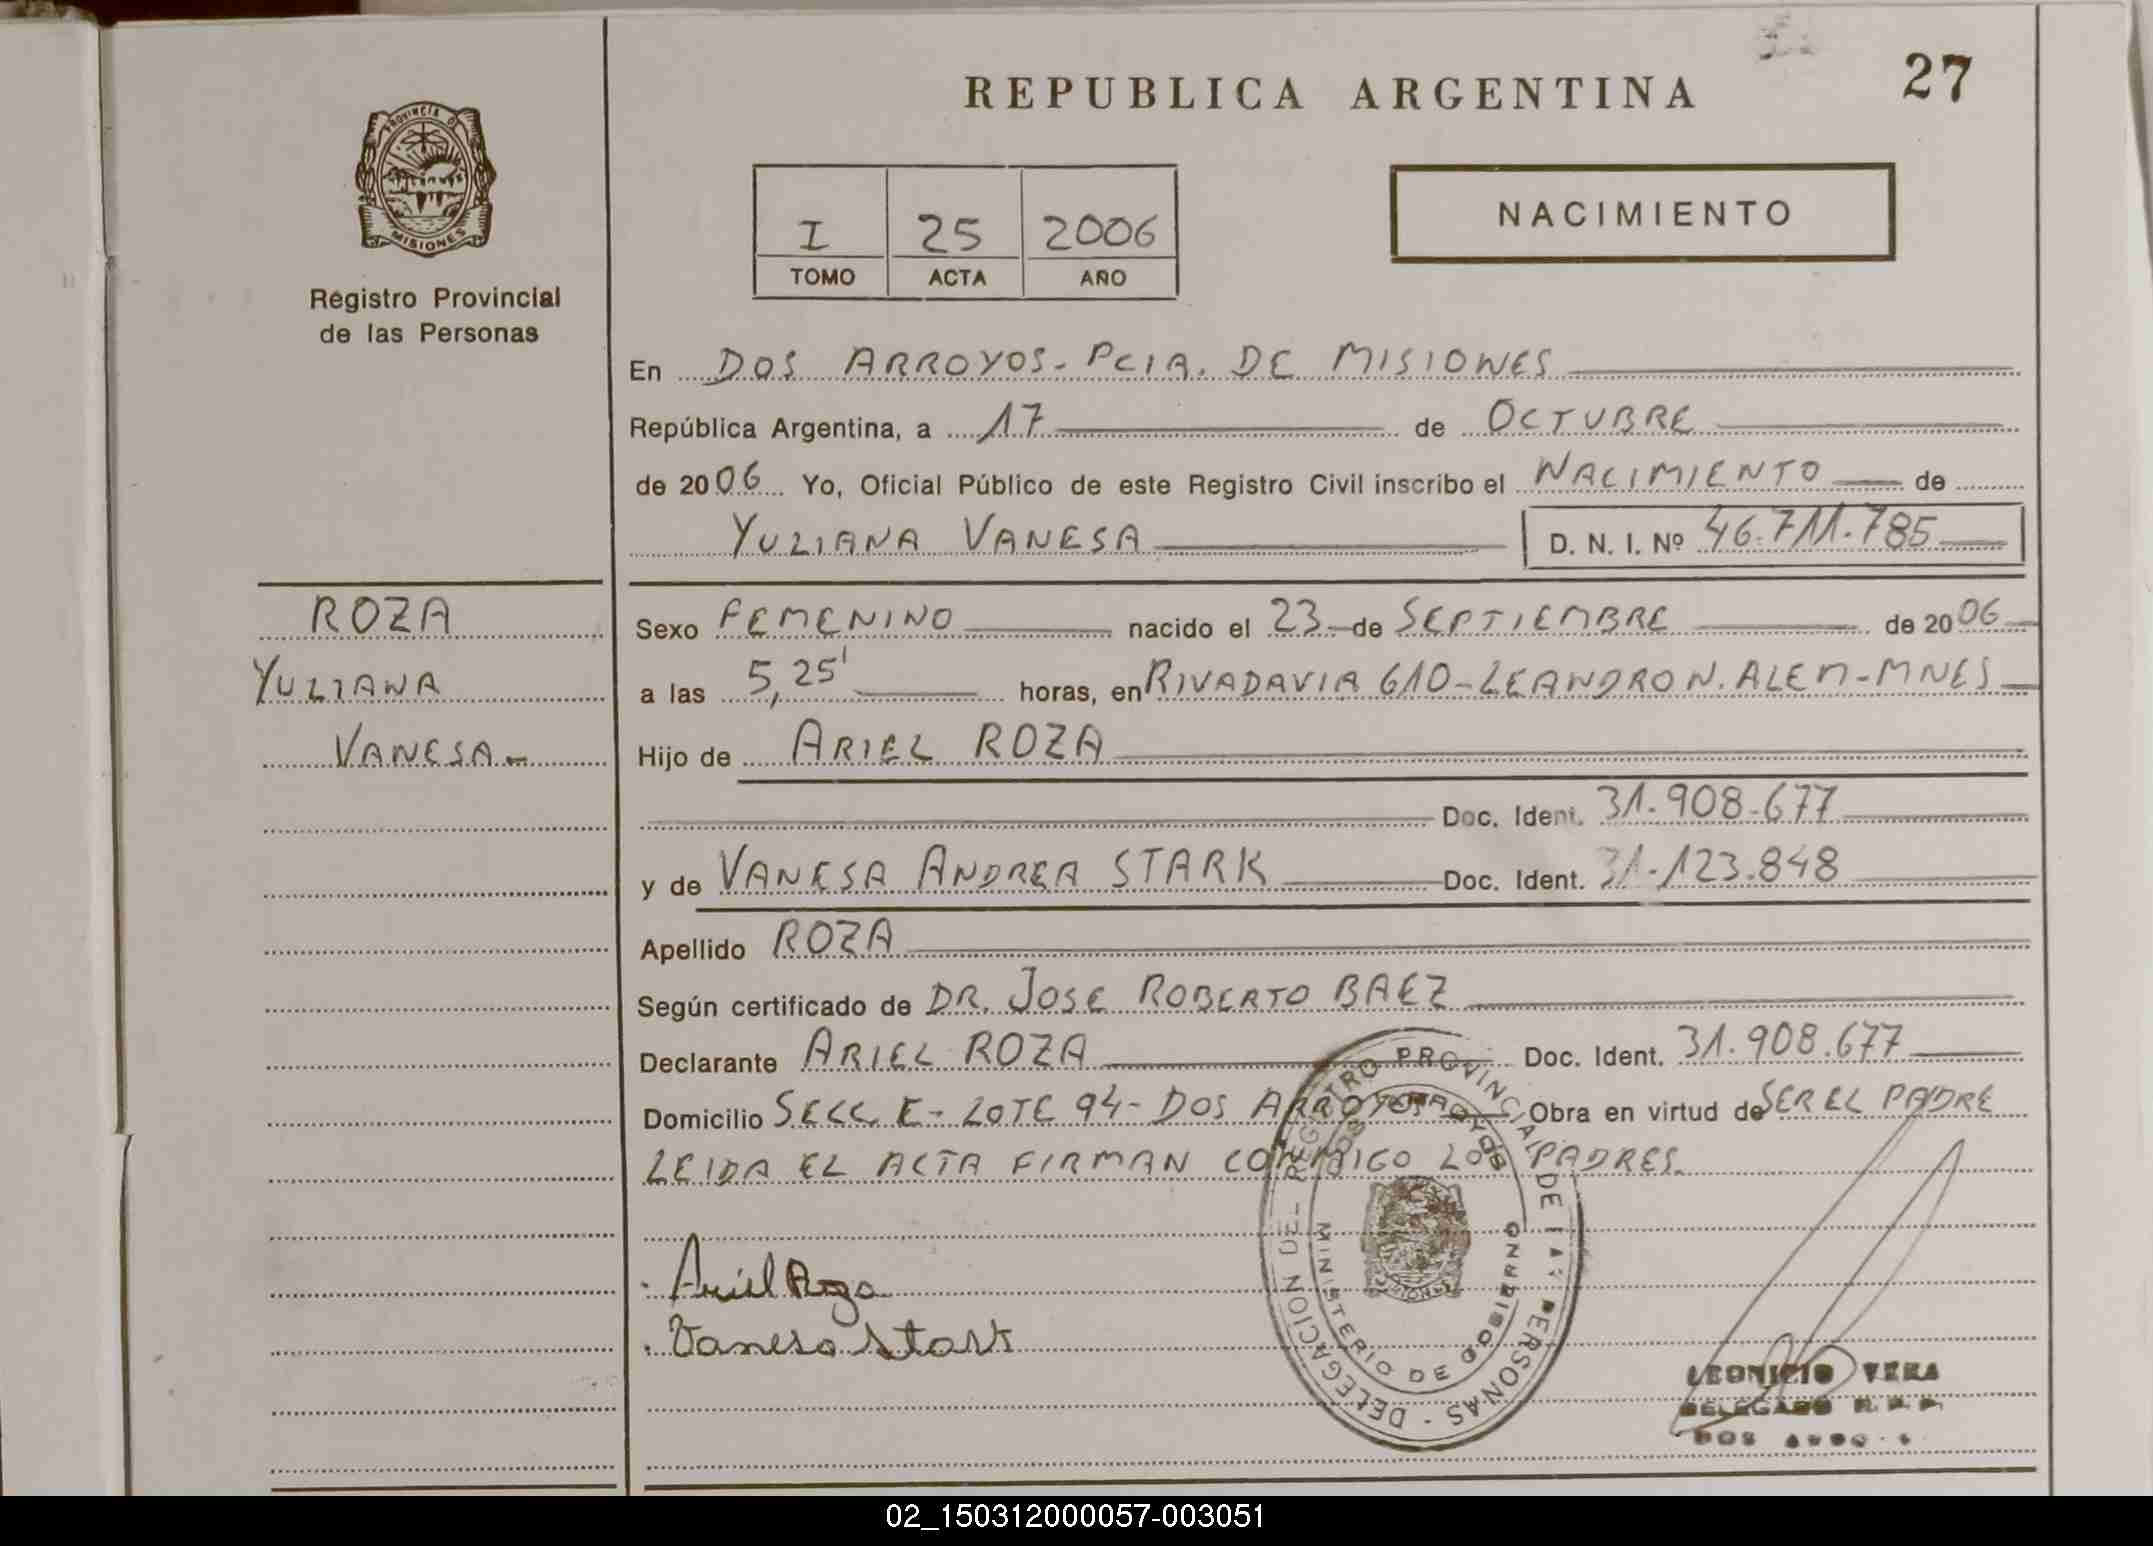 REPUBLICA ARGENTINA
27
PROVINCIA DE
MISIONES
Registro Provincial
de las Personas
I 25 2006
TOMO ACTA AÑO
NACIMIENTO
En DOS ARROYOS- PCIA. DE MISIONES
República Argentina, a 17 de OCTUBRE
de 2006 Yo, Oficial Público de este Registro Civil inscribo el NACIMIENTO de
YULIANA VANESA D. N. I. Nº 46.711.785
ROZA
YULIANA
VANESA.-
Sexo FEMENINO nacido el 23 de SEPTIEMBRE de 2006
a las 5,25' horas, en RIVADAVIA 610-LEANDRO N. ALEM-MNES
Hijo de ARIEL ROZA
Doc. Ident. 31.908.677
y de VANESA ANDREA STARK Doc. Ident. 31.123.848
Apellido ROZA
Según certificado de DR. JOSE ROBERTO BAEZ
Declarante ARIEL ROZA Doc. Ident. 31.908.677
Domicilio SECC E- LOTE 94- DOS ARROYOS Obra en virtud de SER EL PADRE
LEIDA EL ACTA FIRMAN CONMIGO LOS PADRES.
Ariel Roza
Vanesa Stark
DELEGACION DE- REGISTRO PROVINCIAL DE LAS PERSONAS -
DOS ARROYOS
MINISTERIO DE GOBIERNO
MISIONES
LEONICIO VERA
DELEGADO R. P. P.
DOS
02_150312000057-003051